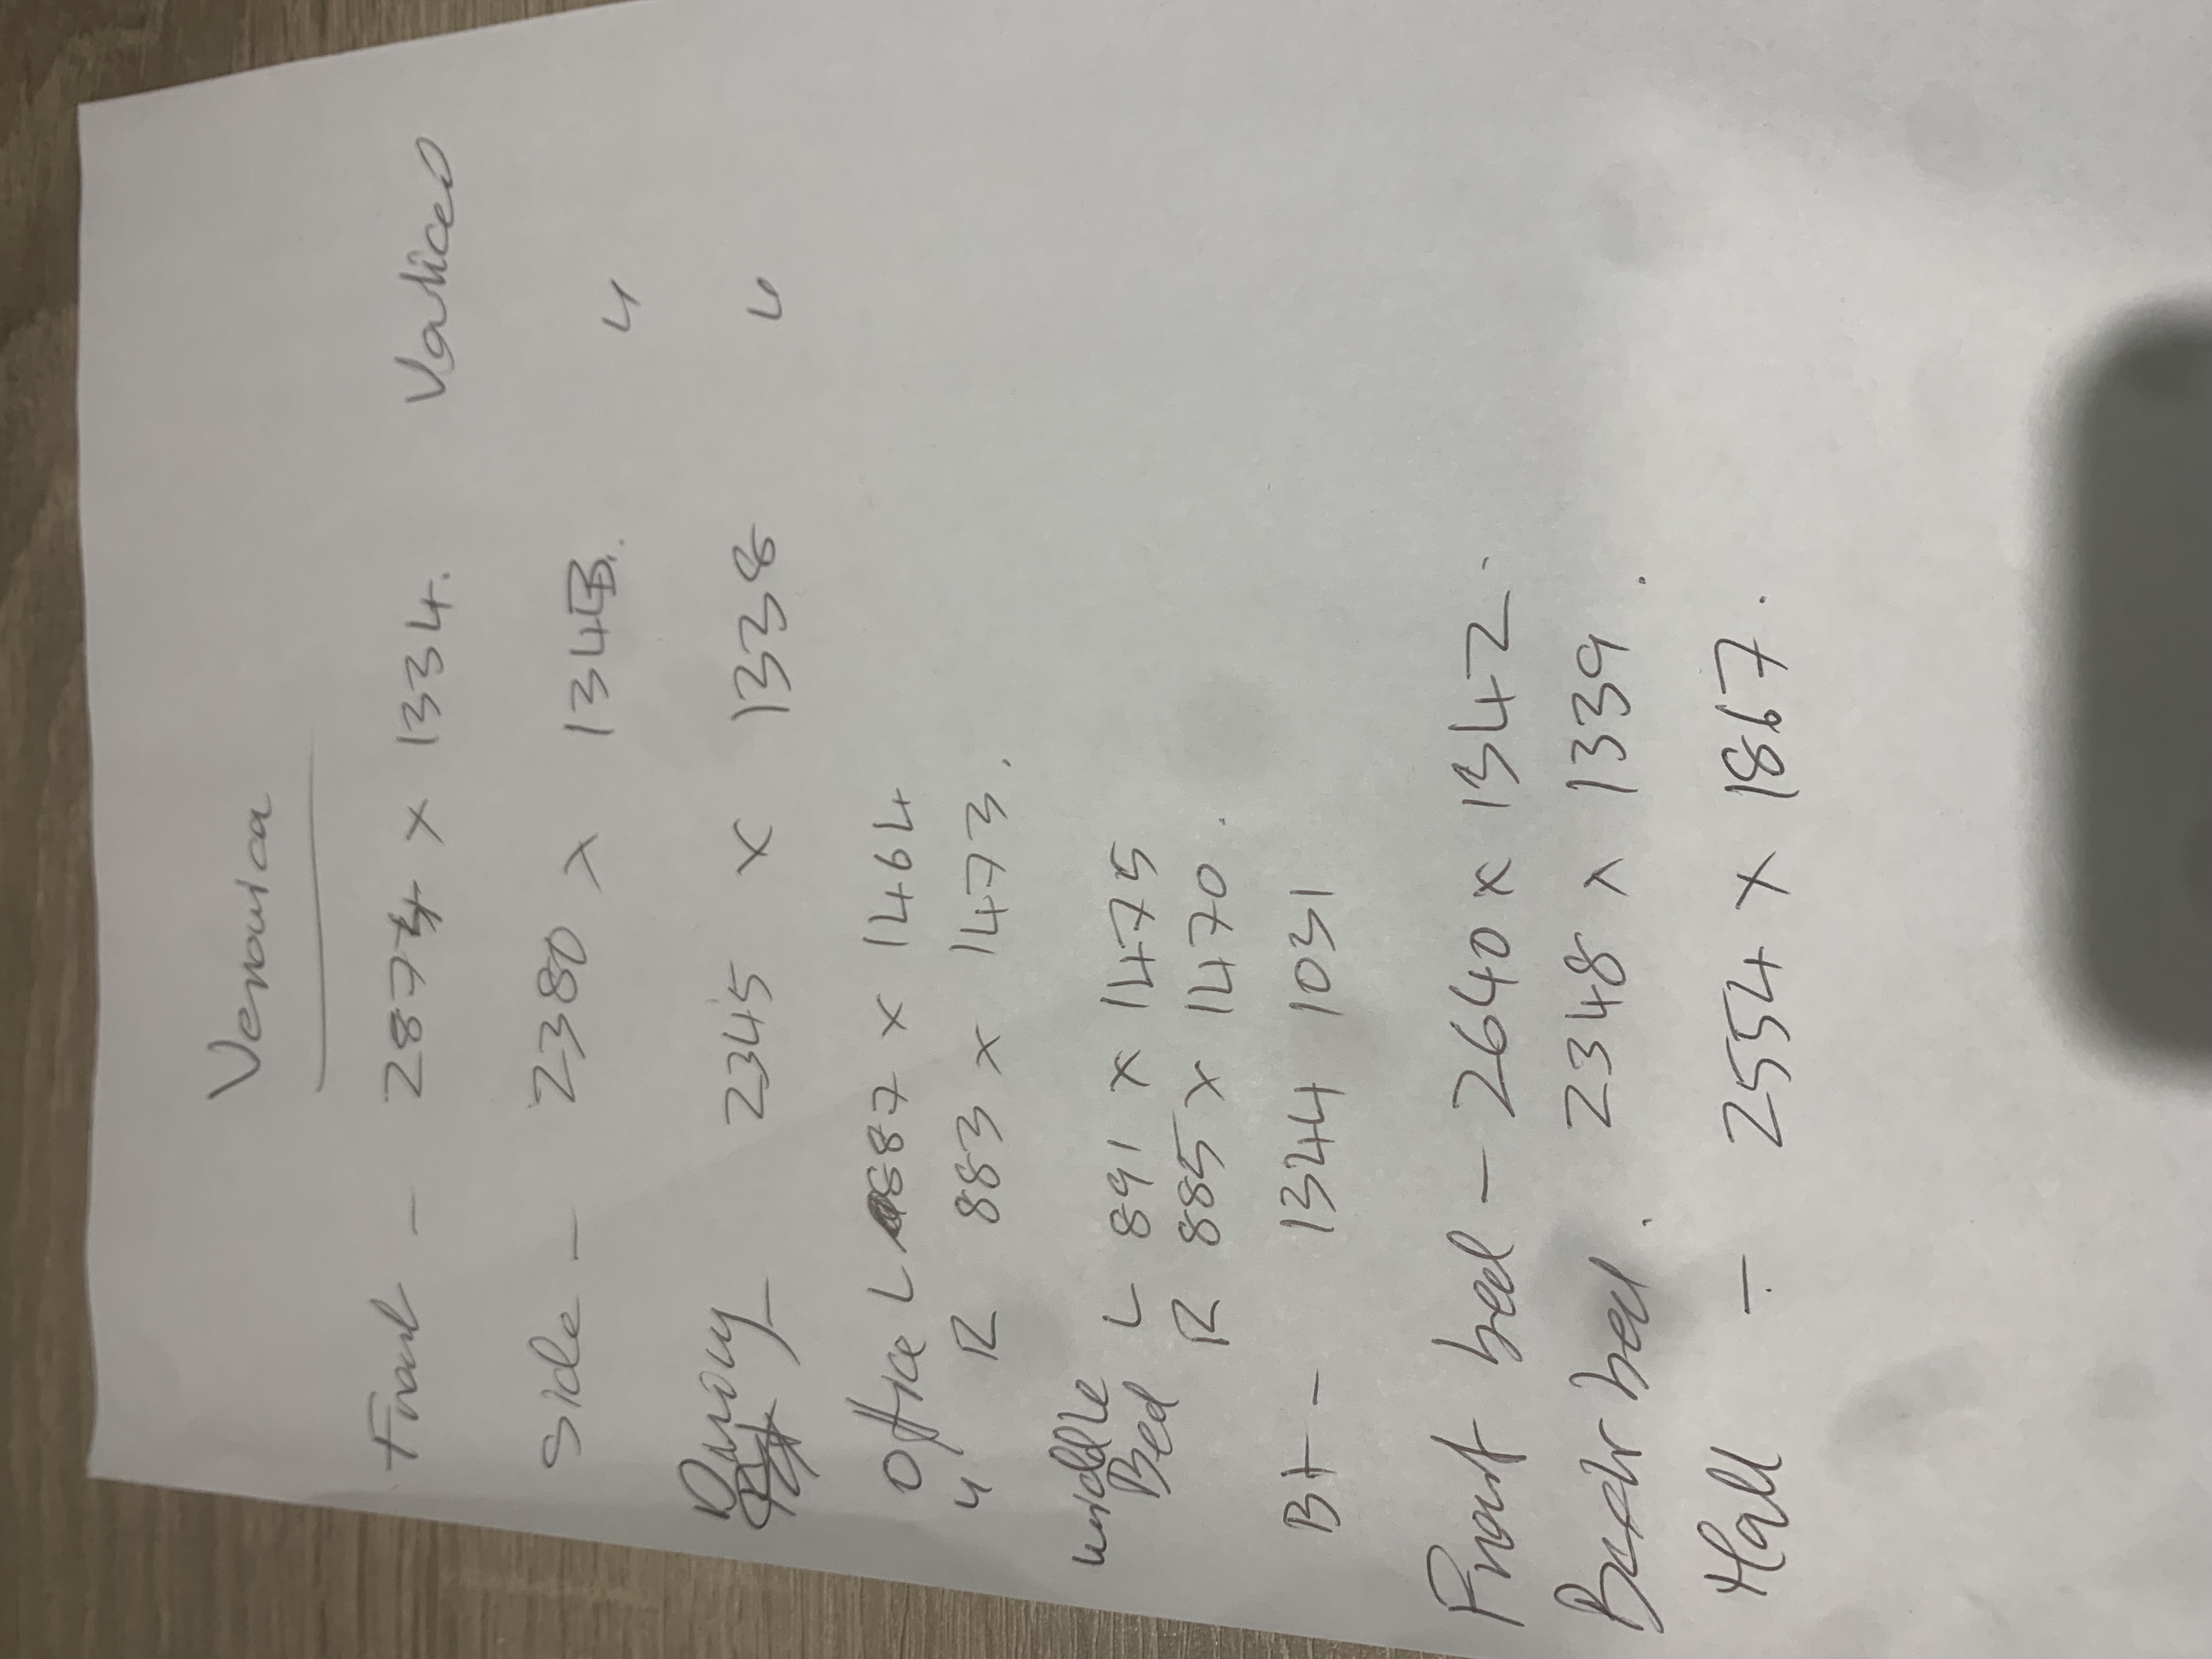 Veronica
Front - 2874 x 1334. Vertical
Side - 2380 x 1343. "
2345 x 1338 "
Office L 887 x 1464
" R 883 x 1473.
Middle L 891 x 1475
Bed R 885 x 1470.
Bt - 1344 1031
Front bed - 2640 x 1342.
Back bed. 2348 x 1339.
Hall - 2554 x 1867.